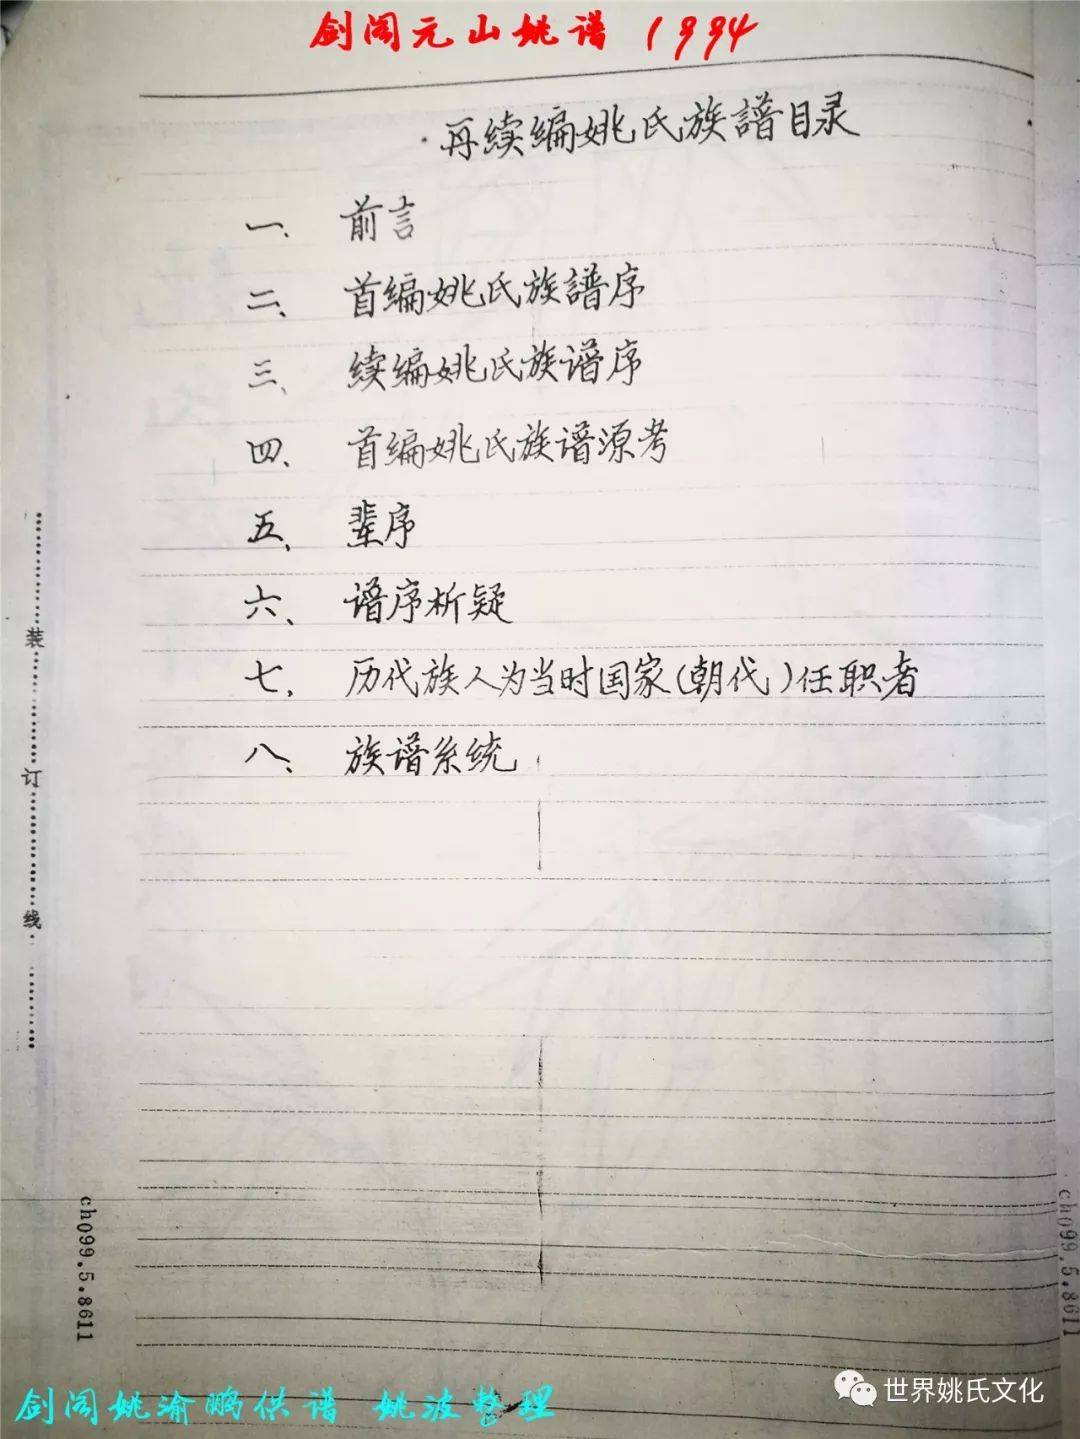 剑阁元山姚谱 1994
再续编姚氏族譜目录
一、 前言
二、 首编姚氏族譜序
三、 续编姚氏族谱序
四、 首编姚氏族谱源考
五、 辈序
六、 谱序析疑
七、 历代族人为当时国家(朝代)任职者
八、 族谱系统
装
订
线
cho99.5.8611
cho99.5.8611
剑阁姚渝鹏供谱 姚波整理
世界姚氏文化